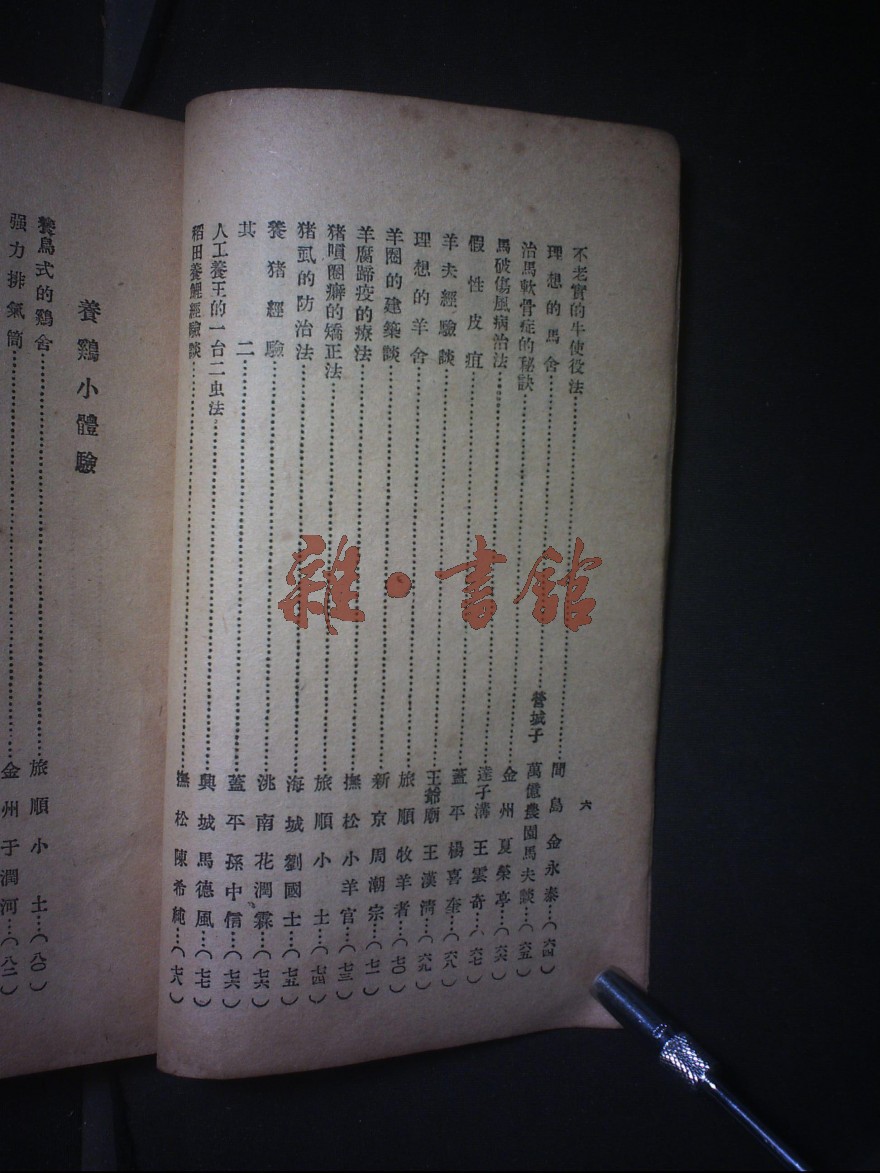 六
不老實的牛使役法……間島 金永泰…(六四)
理想的馬舍……管城子 萬億農園馬夫談…(六五)
治馬軟骨症的秘訣……金州 夏榮亭…(六六)
馬破傷風病治法……達子溝 王雲奇…(六七)
假性皮疽……蓋平 楊喜奎…(六八)
羊夫經驗談……王爺廟 王漢濟…(六九)
理想的羊舍……旅順 牧羊者…(七〇)
羊圈的建築談……新京 周潮宗…(七一)
羊腐蹄疫的療法……撫松 小羊官…(七三)
猪嗔圈癖的矯正法……旅順 小土…(七四)
猪虱的防治法……海城 劉國士…(七五)
養猪經驗……洮南 花潤霖…(七六)
其二……蓋平 孫中信…(七六)
人工養王的一台二虫法……興城 馬德風…(七七)
稻田養鯉經驗談……撫松 陳希純…(七八)
養鷄小體驗
養鳥式的鷄舍……旅順 小土…(八〇)
强力排氣筒……金州 于潤河…(八二)
雜·書館